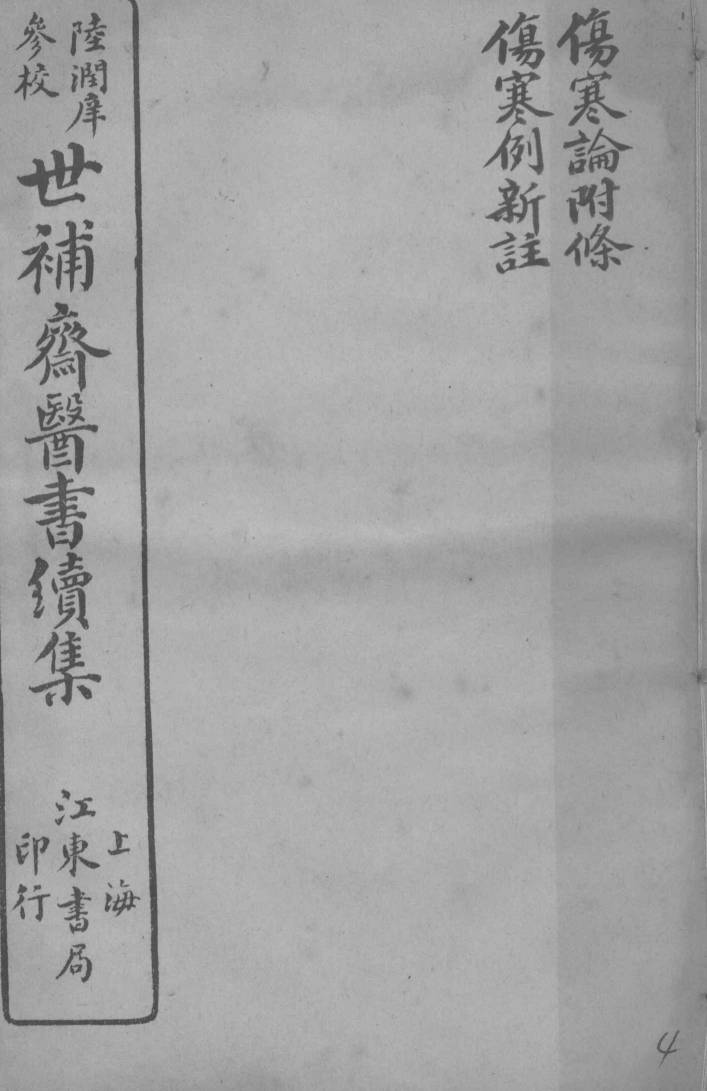 傷寒論附條
傷寒例新註
陸潤庠
參校
世補齋醫書續集
上海
江東書局
印行
4